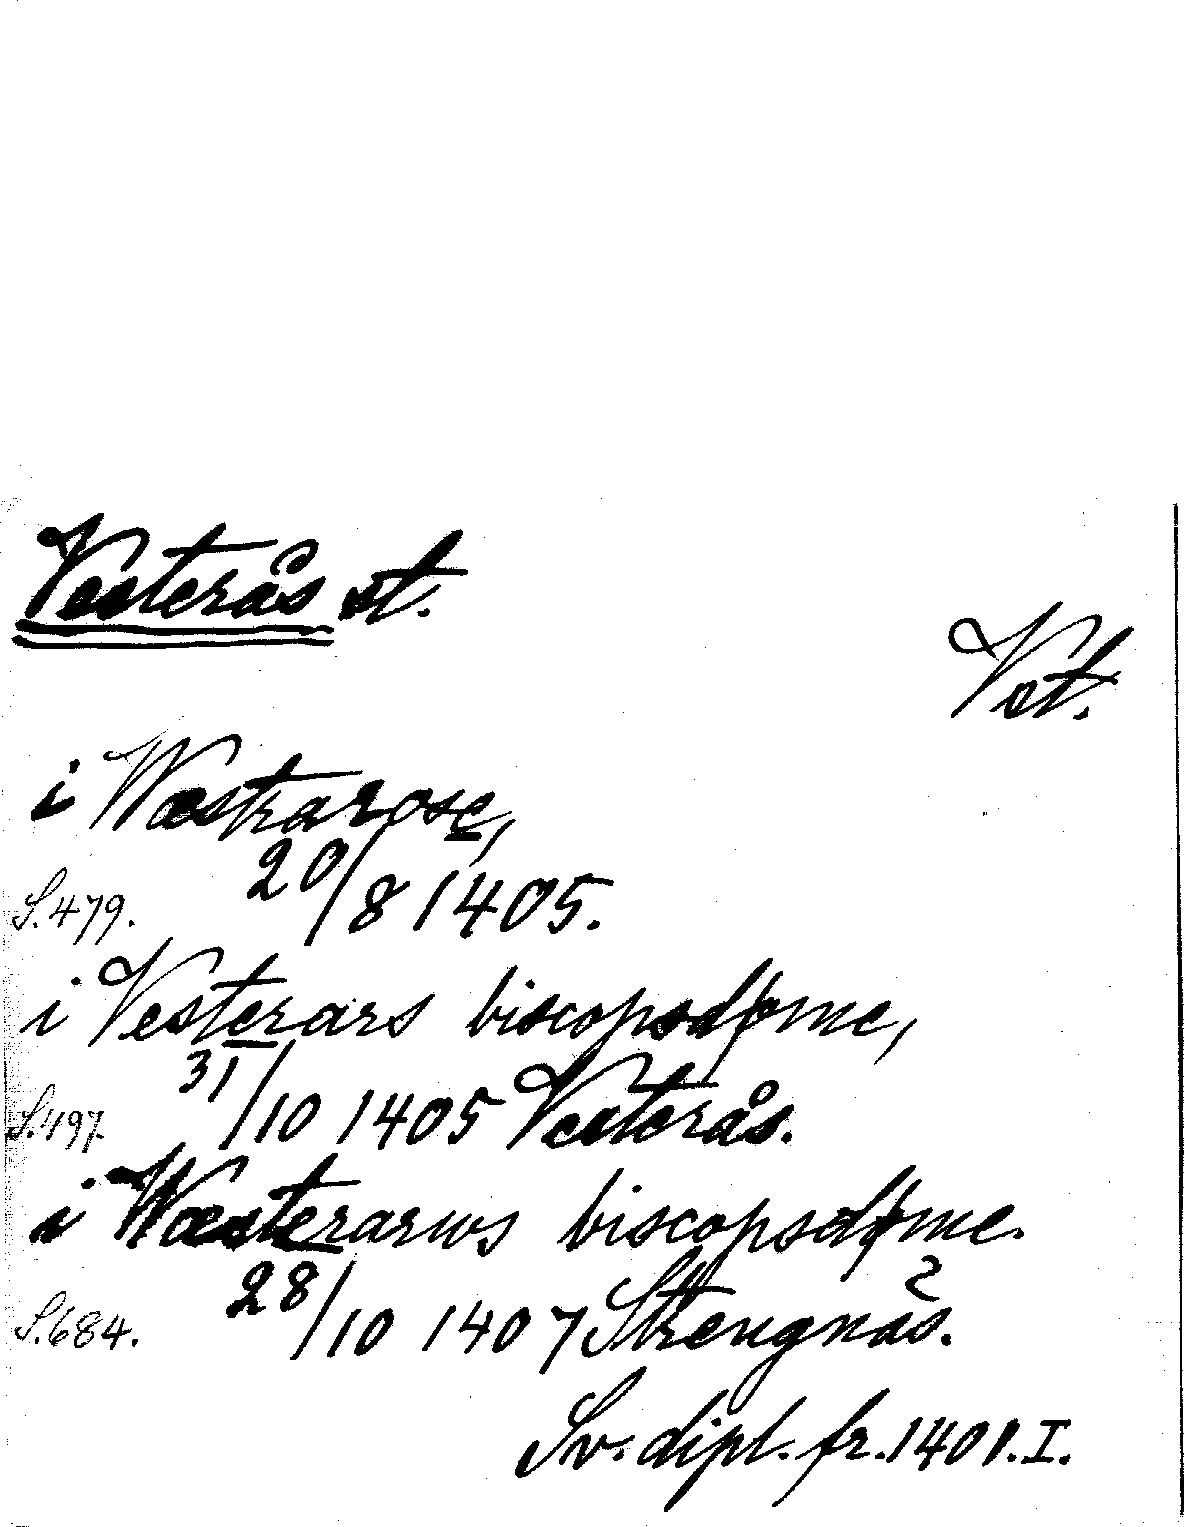 Vesterås st.
Vst.
i Wæstrarose,
S.479. 20/8 1405.
i Vesterars biscopsdøme,
S.497. 31/10 1405 Vesterås.
i Wæsterarws biscopsdøme.
S.684. 28/10 1407 Strengnäs.
Sv. dipl. fr. 1401. I.